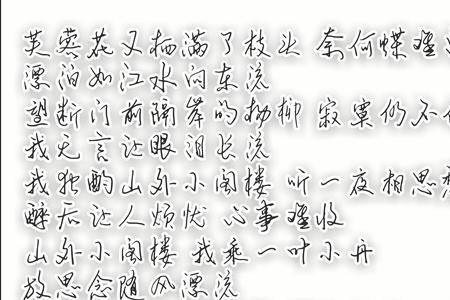 芙蓉花又栖满了枝头 奈何蝶难
漂泊如江水向东流
望断门前隔岸的杨柳 寂寞仍不
我无言让眼泪长流
我独酌山外小阁楼 听一夜相思
醉后让人烦忧 心事难收
山外小阁楼 我乘一叶小舟
放思念随风漂流